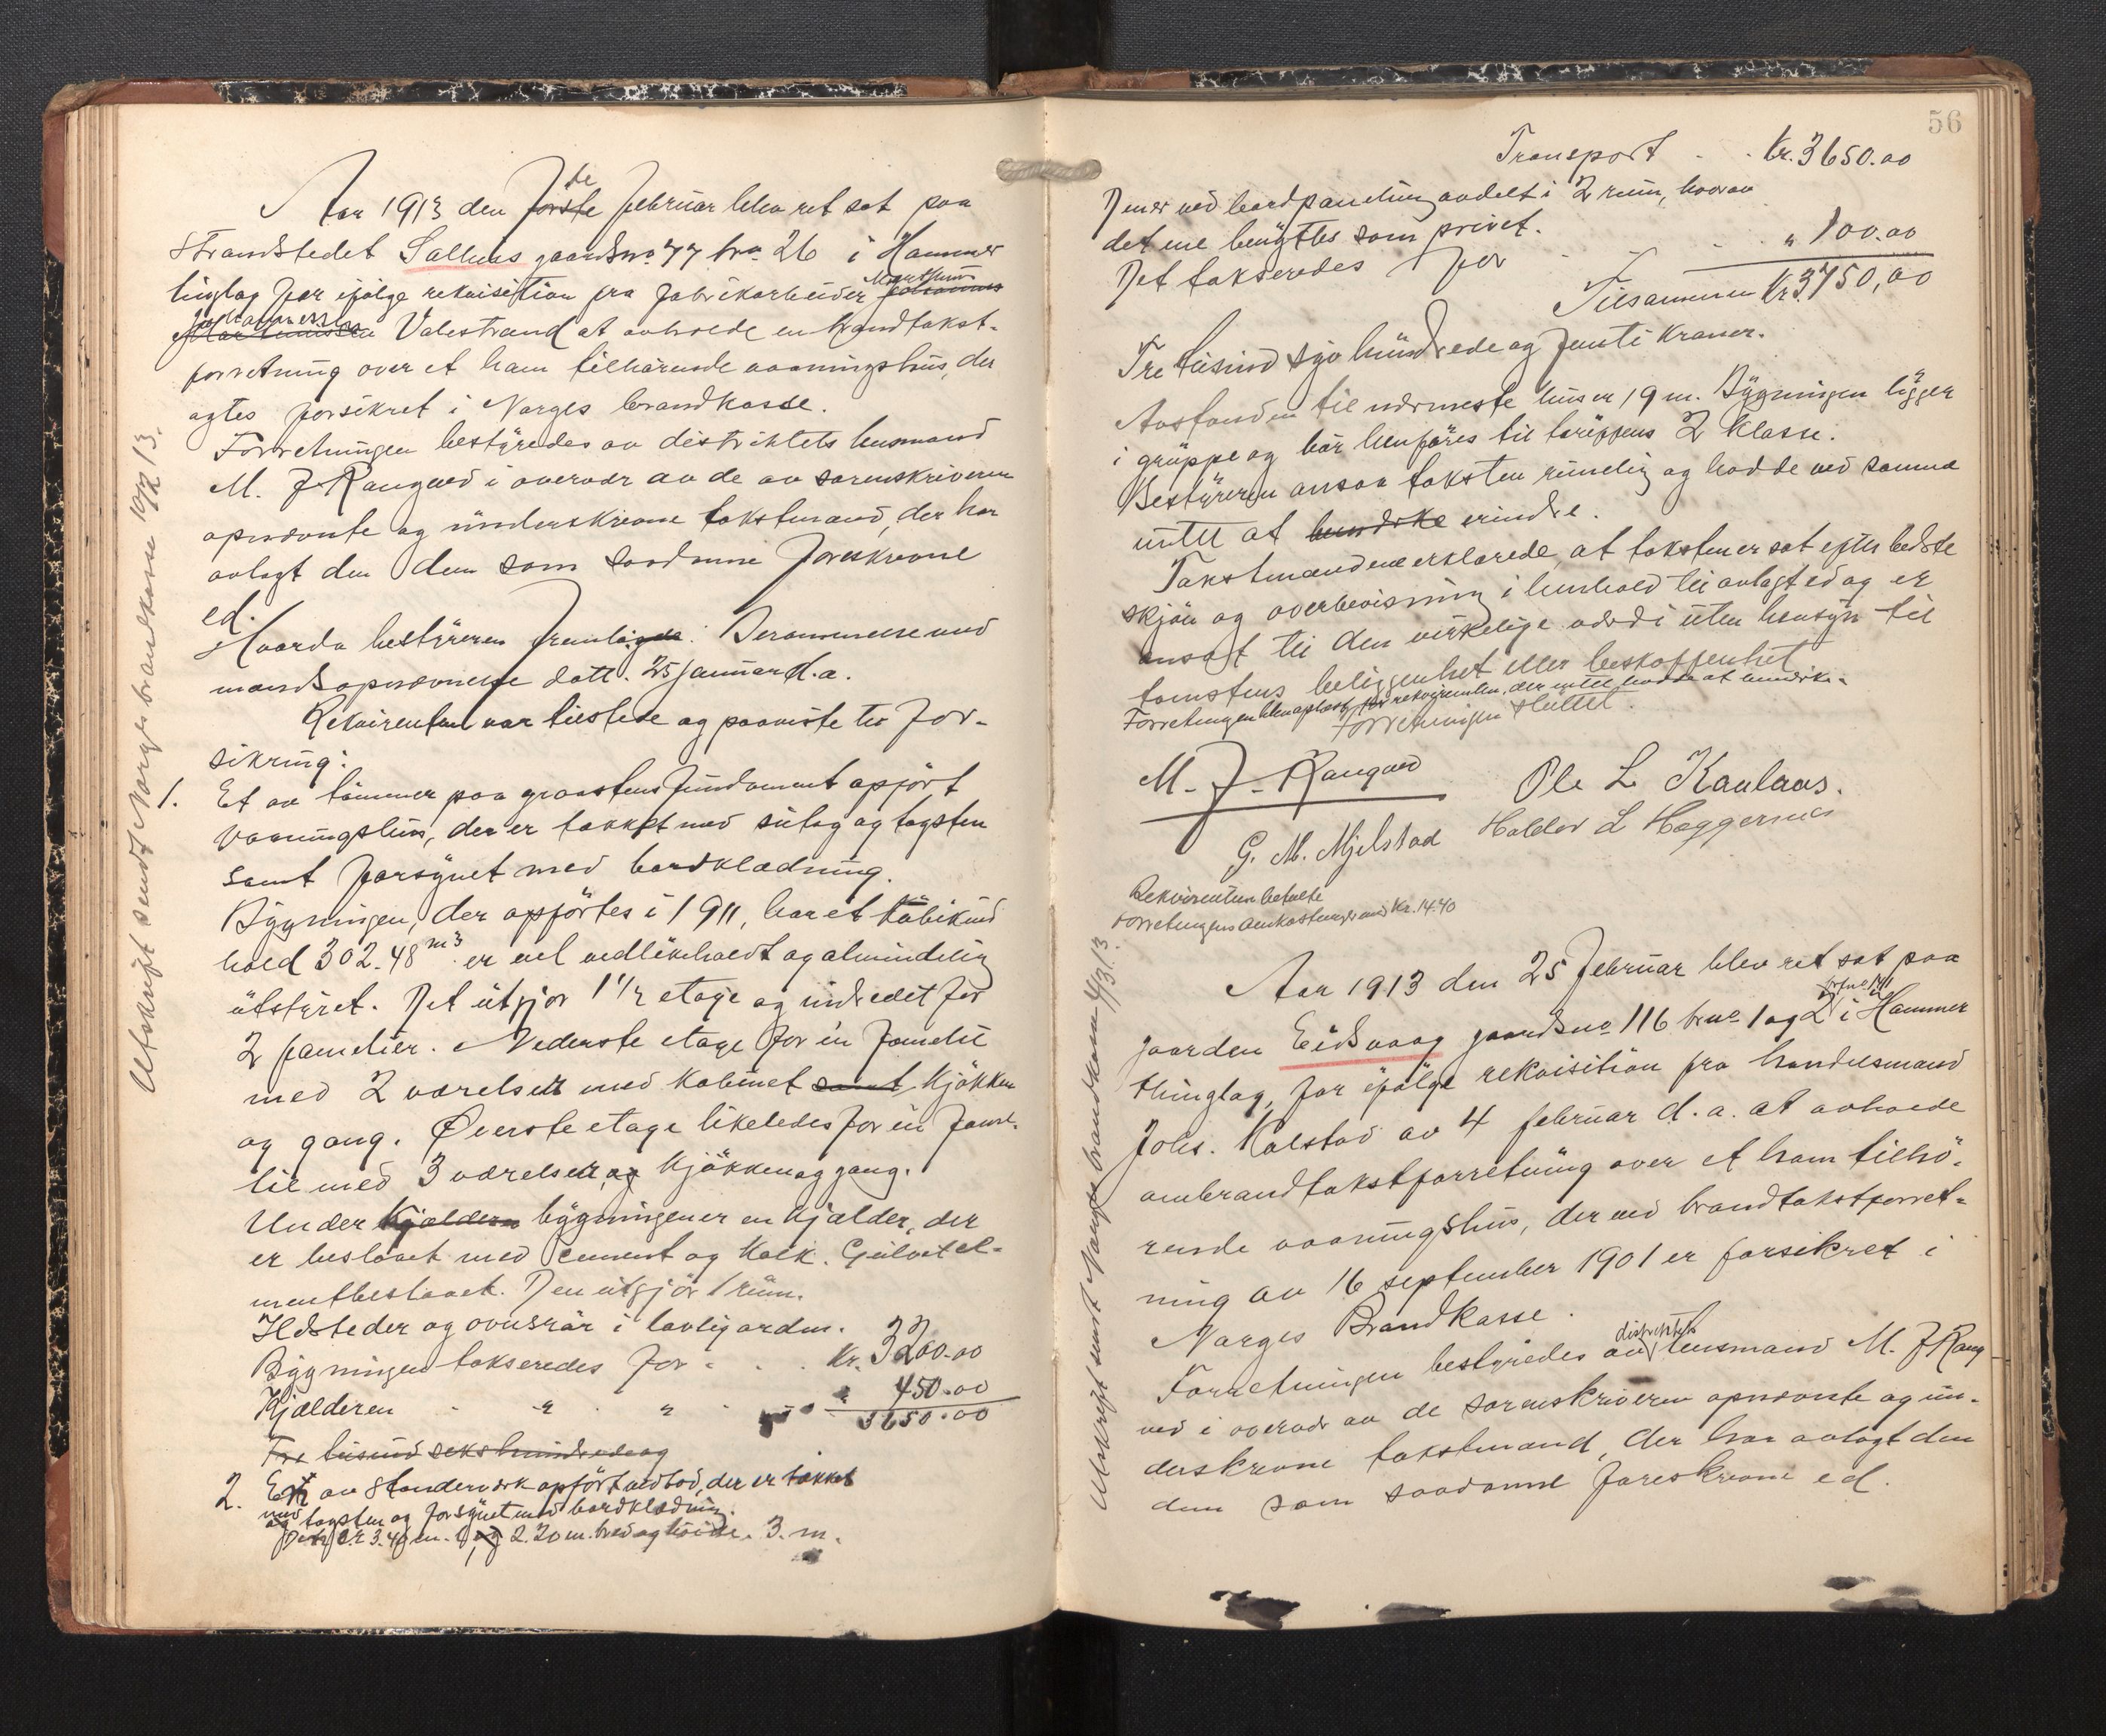 Utskrift sendt Norges brandkasse 10/2 13.
Aar 1913 den første februar blev ret sat paa
strandstedet Salhus gaardsno 77 bno 26 i Hammer
tinglag for ifølge rekvisition fra fabrikarbeider Markhus Johannes
Johannessen Valestrand at avholde en brandtakst-
forretning over et ham tilhørende vaaningshus, der
agtes forsikret i Norges brandkasse.
Forretningen bestyredes av distriktets lensmand
M. J. Rangved i overvær av de av sorenskriveren
opnævnte og underskrevne takstmænd, der har
avlagt den dem som saadanne foreskrevne
ed.
Hvorda bestyreren fremlagde: Berammelse med
mandsopnævnelse datt. 25 januar d.a.
Rekvirenten var tilstede og paaviste til for-
sikring:
1. Et av tømmer paa graastensfundament opført
vaaningshus, der er tækket med sutag og tagsten
samt forsynet med bordklædning.
Bygningen, der opførtes i 1911, har et kubikind
hold 302.48 m3. er vel vedlikeholdt og almindelig
utstyret. Det utgjør 1 1/2 etage og indredet for
2 familier. Nederste etage for en familie
med 2 værelser med kabinet samt kjøkken
og gang. Øverste etage likeledes for en fami-
lie med 3 værelser, og kjøkken og gang.
Under Kjælderen bygningen er en Kjælder, der
er beslaaet med cement og kalk. Gulvet ce-
mentbeslaaet. Den utgjør 1 rum.
Ildsteder og ovnsrør i lovlig orden.
Bygningen takseredes for . . . Kr. 3200.00
Kjælderen " " " 450.00
3650.00
Tre tusind sekshundrede og
2. Et av standerværk opført vedbod, der er tækket
med tagsten og forsynet med bordklædning.
Den er 3.40 m. l, og 2.20 m. bred og høide. 3. m.
56
Transport . . Kr. 3650.00
Den er ved bordpaneling avdelt i 2 rum, hvorav
det ene benyttes som privet.
Det takseredes for . . . " 100.00
Tilsammen Kr. 3750,00
Tre tusind syv hundrede og femti kroner.
Avstanden til nærmeste hus er 19 m. Bygningen ligger
i gruppe og bør henføres til tariffens 2 klasse.
Bestyreren ansaa taksten rimelig og hadde ved samme
intet at bemerke erindre.
Takstmændene erklærede, at taksten er sat efter bedste
skjøn og overbevisning i henhold til avlagt ed og er
ansat til den virkelige værdi uten hensyn til
tomtens beliggenhet eller beskaffenhet
Forretningen blev oplæst for rekvirenten, der intet hadde at bemerke.
Forretningen sluttet.
M. J. Rangved Ole L Kaulaas.
G. M. Mjelstad Halder L Haggernes
Rekvirenten betalte
forretningens omkostninger med Kr. 14.40
Utskrift sendt Norges brandkasse 4/3 13.
Aar 1913 den 25 februar blev ret sat paa
gaarden Eidsvaag gaardsno 116 bno 1 og 2 i Hammer
thinglag, for ifølge rekvisition fra handelsmand
Johs. Kalstad av 4 februar d.a. at avholde
ombrandtakstforretning over et ham tilhø-
rende vaaningshus, der ved brandtakstforret-
ning av 16 september 1901 er forsikret i
Norges Brandkasse.
Forretningen bestyredes av distriktets lensmand M. J Rang
ved i overvær av de sorenskriveren opnævnte og un-
derskrevne takstmænd, der har avlagt den
dem som saadanne foreskrevne ed.